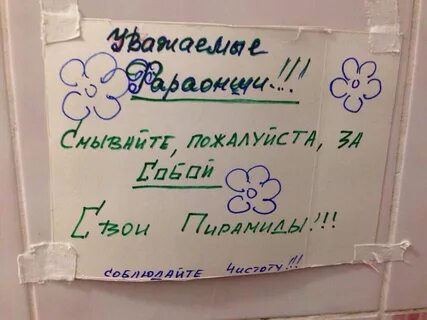 Уважаемые
Фараонши!!!
Смывайте, пожалуйста, за
Собой
Свои Пирамиды!!!
соблюдайте чистоту!!!